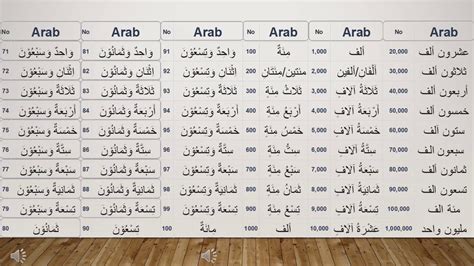 No Arab No Arab No Arab No Arab No Arab No Arab
71 واحدٌ وسَبْعُوْنَ 81 واحدٌ وَثمَانُوْنَ 91 واحدٌ وَتِسْعُوْنَ 100 مِئَةٌ 1,000 ألف 20,000 عشرون ألف
72 إثْنَان وَسَبْعُوْنَ 82 إثْنَان وَثَمانُوْنَ 92 إثْنَان وَتِسْعُوْنَ 200 مئتين/مئتان 2,000 ألْفَان/ألفين 30,000 ثلاثون ألف
73 ثَلاَثَةٌ وَسَبْعُوْنَ 83 ثَلاَثَةٌ وَثَمانُوْنَ 93 ثَلاَثَةٌ وَتِسْعُوْنَ 300 ثَلاَثُ مِئَةٍ 3,000 ثَلاَثَةُ آلاَفٍ 40,000 أربعون ألف
74 أرْبَعةٌ وَسَبْعُوْنَ 84 أرْبَعةٌ وَثَمانُوْنَ 94 أرْبَعةٌ وَتِسْعُوْنَ 400 أرْبَعُ مِئَةٍ 4,000 أرْبَعَةُ آلاَفٍ 50,000 خمسون ألف
75 خَمْسَةٌ وَسَبْعُوْنَ 85 خَمْسَةٌ وَثَمانُوْنَ 95 خَمْسَةٌ وَتِسْعُوْنَ 500 خَمْسُ مِئَةٍ 5,000 خَمْسَةُ آلاَفٍ 60,000 ستون ألف
76 ستَّةٌ وَسَبْعُوْنَ 86 ستَّةٌ وَثَمانُوْنَ 96 ستَّةٌ وَتِسْعُوْنَ 600 ستُّ مِئَةٍ 6,000 ستَّةُ آلاَفٍ 70,000 سبعون الف
77 سَبْعَةٌ وَسَبْعُوْنَ 87 سَبْعَةٌ وَثَمانُوْنَ 97 سَبْعَةٌ وَتِسْعُوْنَ 700 سَبْعُ مِئَةٍ 7,000 سَبْعَةُ آلاَفٍ 80,000 ثمانون الف
78 ثَمانِيَةٌ وَسَبْعُوْنَ 88 ثَمانِيَةٌ وَثَمانُوْنَ 98 ثَمانِيَةٌ وَتِسْعُوْنَ 800 ثَمَانُ مِئَةٍ 8,000 ثَمانِيَةُ آلاَفٍ 90,000 تسعون الف
79 تِسْعَةٌ وَسَبْعُوْنَ 89 تِسْعَةٌ وَثَمانُوْنَ 99 تِسْعَةٌ وَتِسْعُوْنَ 900 تِسْعُ مِئَةٍ 9,000 تِسْعَةُ آلاَفٍ 100,000 مئة الف
80 ثَمَانُوْنَ 90 تِسْعُوْنَ 100 مائةٌ 1000 ألف 10,000 عشْرَةُ آلاَفٍ 1,000,000 مليون واحد